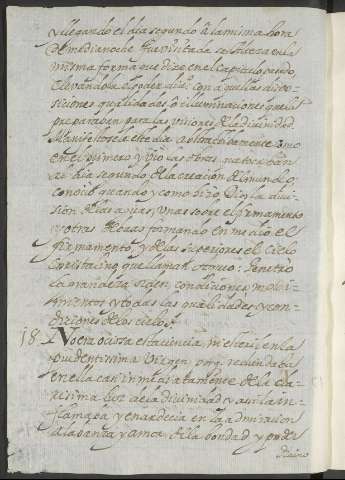 y llegando el dia segundo à la misma hora
de media noche fue visitada
misma forma que dixe en el capitulo pasado
elevandola el poder divino con aquellas dispo-
siciones qualidades ò illuminaciones que la
preparaven para las visiones de la divinidad
Manifestosele este dia abstractivamente como
en el primero y vio las obras que tocaban
al dia segundo de la creacion del mundo
conociò quando y como hizo Dios la divi-
sion de las aguas, unas sobre el firmamento
y otras debaxo formando en medio el
firmamento y de las superiores el cielo
cristalino que llaman aqueo: Penetro
la grandeza orden condiciones movi-
mientos y todas las qualidades y con-
diciones de los cielos
18. No era ociosa esta ciencia ni esteril en la
prudentissima Virgen porque redundaba
en ella casi inmediatamente de la cla-
rissima luz de la divinidad y asi la in-
flamaba y enardecia en la admiracion
alabanza y amor de la bondad y poder
divino